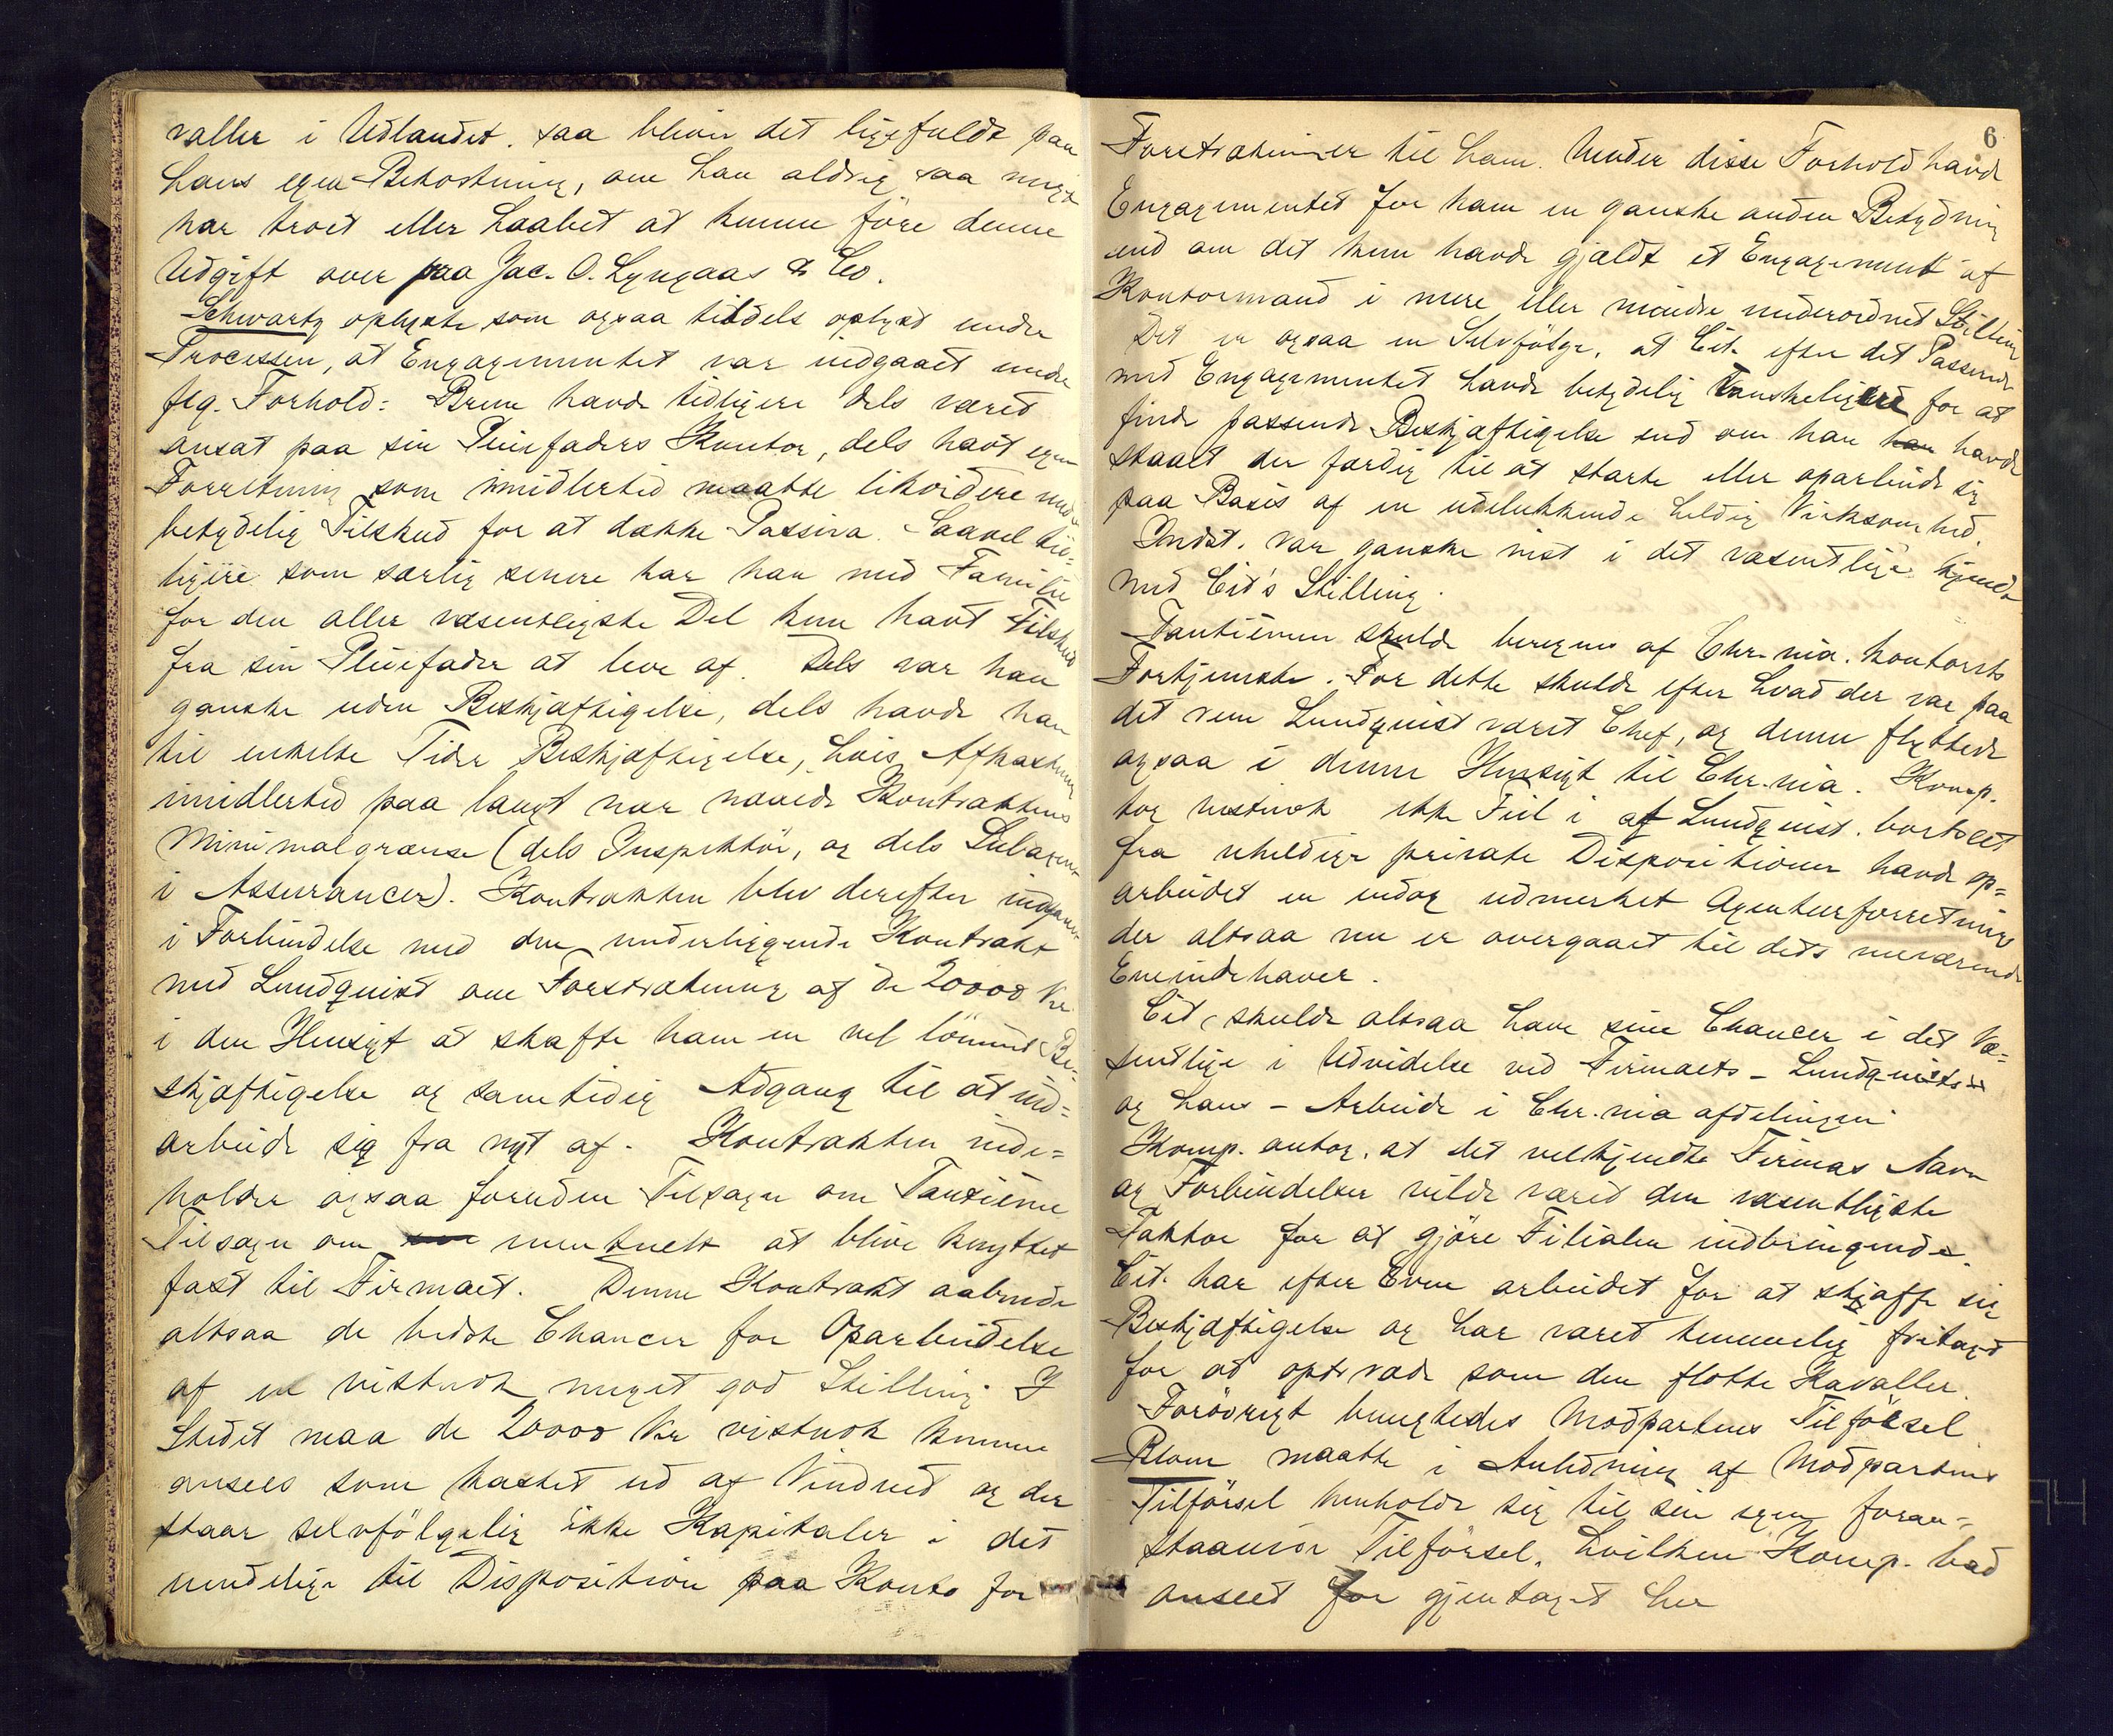 valler i Udlandet. saa bliver det ligefuldt paa
hans egen Bekostning, om han aldrig saa meget
har troet eller haabet at kunne føre denne
Udgift over paa Jac. O. Lyngaas & Co.
Schwartz oplyste som ogsaa tildels oplyst under
Processen, at Engagementet var indgaaet under
flg. Forhold: Brun havde tidligere dels været
ansat paa sin Pleiefaders Kontor, dels havt egen
Forretning som imidlertid maatte likvidere med
betydelig Tilskud for at dække Passiva. Saavel tid-
ligere som særlig senere har han med Familie
for den aller væsentligste Del kun havt Tilskud
fra sin Pleiefader at leve af. Dels var han
ganske uden Beskjæftigelse, dels havde han
til enkelte Tider Beskjæftigelse, hvis Afkastning
imidlertid paa langt nær naaede Kontraktens
Minimalgrænse (dels Inspektør, og dels Subagent
i Assurancer). Kontrakten blev derefter indgaaet
i Forbindelse med den underliggende Kontrakt
med Lundquist om Forstrækning af de 20000 Kr
i den Hensigt at skaffe ham en vel lönnet Be-
skjæftigelse og samtidig Adgang til at ind=
arbeide sig fra nyt af. Kontrakten inde=
holder ogsaa foruden Tilsagn om Tantième
Tilsagn om eventuelt at blive knyttet
fast til Firmaet. Denne Kontrakt aabnede
altsaa de bedste Chancer for Oparbeidelse
af en vistnok meget god Stilling. I
Stedet maa de 20000 Kr vistnok kunne
ansees som kastet ud af Vinduet og der
staar selvfölgelig ikke Kapitaler i det
uendelige til Disposition paa Konto for
6
Forstrækninger til ham. Under disse Forhold havde
Engagementet for ham en ganske anden Betydning
end om det kun havde gjældt et Engagement af
Kontormand i mere eller mindre underordnet Stilling
Det er ogsaa en Selvfölge, at Cit. efter det Passerede
med Engagementet havde betydelig Vanskeligere for at
finde passende Beskjæftigelse end om han han havde
staaet der færdig til at starte eller oparbeide sig
paa Basis af en udelukkende heldig Virksomhed.
Indst. var ganske vist i det væsentlige kjendt
med Cit's Stilling.
Tantièmen skulde beregnes af Chr.nia. kontorets
Fortjeneste. For dette skulde efter hvad der var paa
det rene Lundquist været Chef, og denne flyttede
ogsaa i denne Hensigt til Chr.nia. Komp.
tog vistnok ikke Feil i at Lundquist. bortseet
fra uheldige private Dispositioner havde op=
arbeidet en endog udmerket Agenturforretning
der altsaa nu er overgaaet til dets nuværende
Eneindehaver.
Cit. skulde altsaa have sine Chancer i det Væ=
sentlige i Udvidelse ved Firmaets - Lundquists
og hans - Arbeide i Chr.nia afdelingen.
Komp. antog, at det velkjendte Firmas Navn
og Forbindelser vilde været den væsentligste
Faktor for at gjöre Filialen indbringende.
Cit. har efter Evne arbeidet for at skaffe sig
Beskjæftigelse og har været temmelig fritaget
for at optræde som den flotte Kavaller.
Forövrigt benegtedes Modpartens Tilförsel
Blom maatte i Anledning af Modpartens
Tilförsel henholde sig til sin egen foran-
staaende Tilförsel, hvilken Komp. bad
anseet for gjentaget her